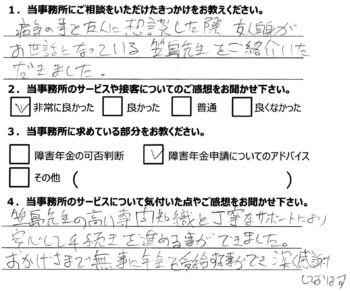 1．当事務所にご相談をいただけたきっかけをお教えください。
病気の事を友人に相談した際 友人が
お世話となっている笠島先生をご紹介いた
だきました。
2．当事務所のサービスや接客についてのご感想をお聞かせ下さい。
☑非常に良かった □良かった □普通 □良くなかった
3．当事務所に求めている部分をお教えください。
□障害年金の可否判断 ☑障害年金申請についてのアドバイス
□その他（ ）
4．当事務所のサービスについて気付いた点やご感想をお聞かせ下さい。
笠島先生の高い専門知識と丁寧なサポートにより
安心して手続きを進める事ができました。
おかげさまで無事に年金を受給する事ができ 深く感謝
しております